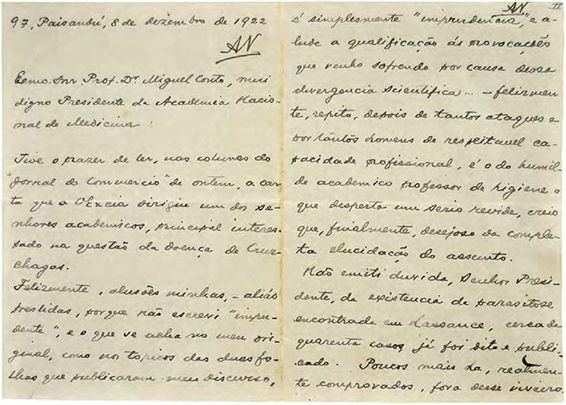 97, Paisandú, 8 de dezembro de 1922
AN
Exmo. Snr. Prof. Dr. Miguel Couto, mui
digno Presidente da Academia Nacio-
nal de Medicina:
Tive o prazer de ler, nas columnas do
"Jornal do Commercio" de ontem, a car-
ta que a VExcia dirigiu um dos se-
nhores academicos, principal interes-
sado na questão da doença de Cruz-
chagas.
Felizmente, alusões minhas, - aliás
prestidas, porque não escrevi "impru-
dente", e o que se acha no meu ori-
ginal, como nos topicos das duas fo-
lhas que publicaram meu discurso,
AN
II
é simplesmente "imprudencia", e a-
lude a qualificação ás provocações
que venho sofrendo por causa dessa
divergencia scientifica... - felizmen-
te, repito, depois de tantos ataques e
por tantos homens de respeitavel ca-
pacidade profissional, é o do humil-
de academico professor de higiene o
que desperta um serio revide, creio
que, finalmente, desejoso da comple-
ta elucidação do assunto.
Não emiti duvida, Senhor Presi-
dente, da existencia da parasitose
encontrada em Lassance, cerca de
quarenta casos, já foi dito e publi-
cado. Poucos mais ha, realmen-
te comprovados, fora desse viveiro